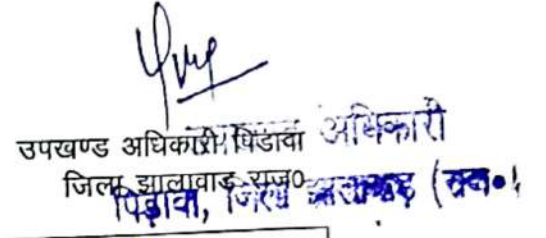 उपखण्ड अधिकारी पिडावा
जिला झालावाड़ राज०
अधिकारी
पिड़ावा, जिला झालावाड़ (राज०)